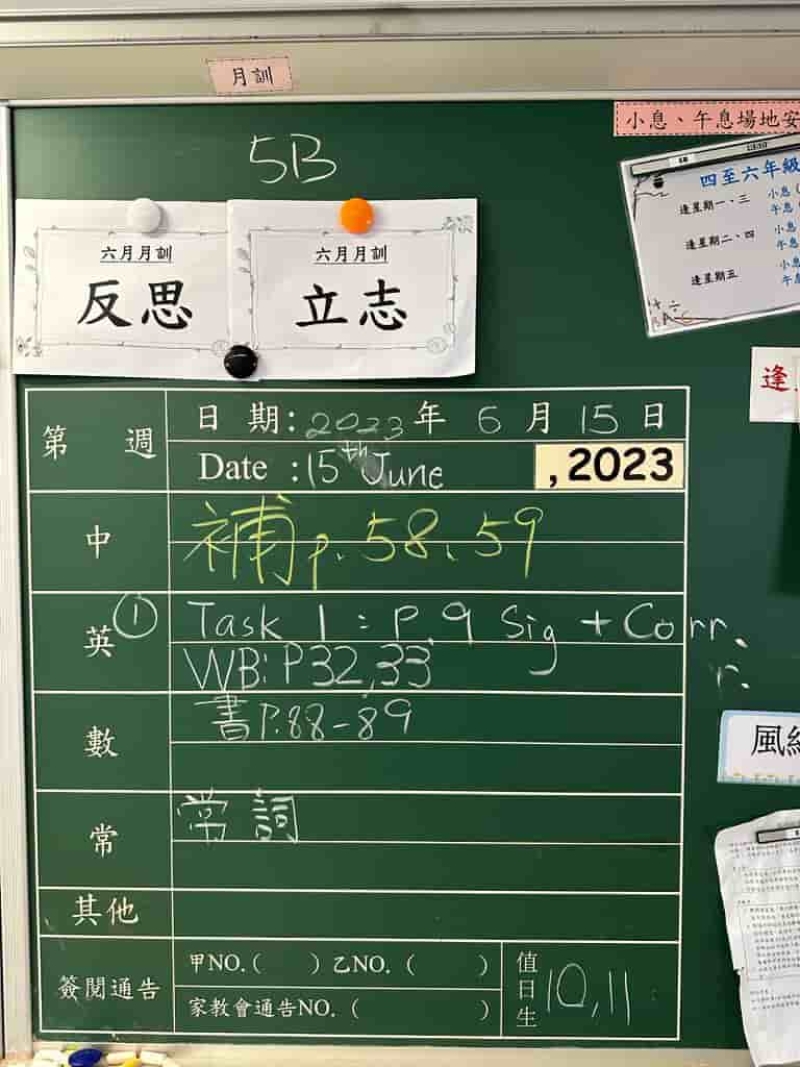 月訓
小息、午息場地安
5B
四至六年級
逢星期一、三
小息
午息
逢星期二、四
小息
午息
逢星期三
小息
午息
六月月訓
反思
六月月訓
立志
逢
第 週
日 期: 2023 年 6 月 15 日
Date : 15th June , 2023
中
補 p. 58、59
英
① Task 1 : P.9 Sig + Corr.
WB: P32,33
r.
數
書 P.88-89
風紀
常
常 詞
其他
簽閱通告
甲NO.( ) 乙NO. ( )
家教會通告NO. ( )
值日生
10,11